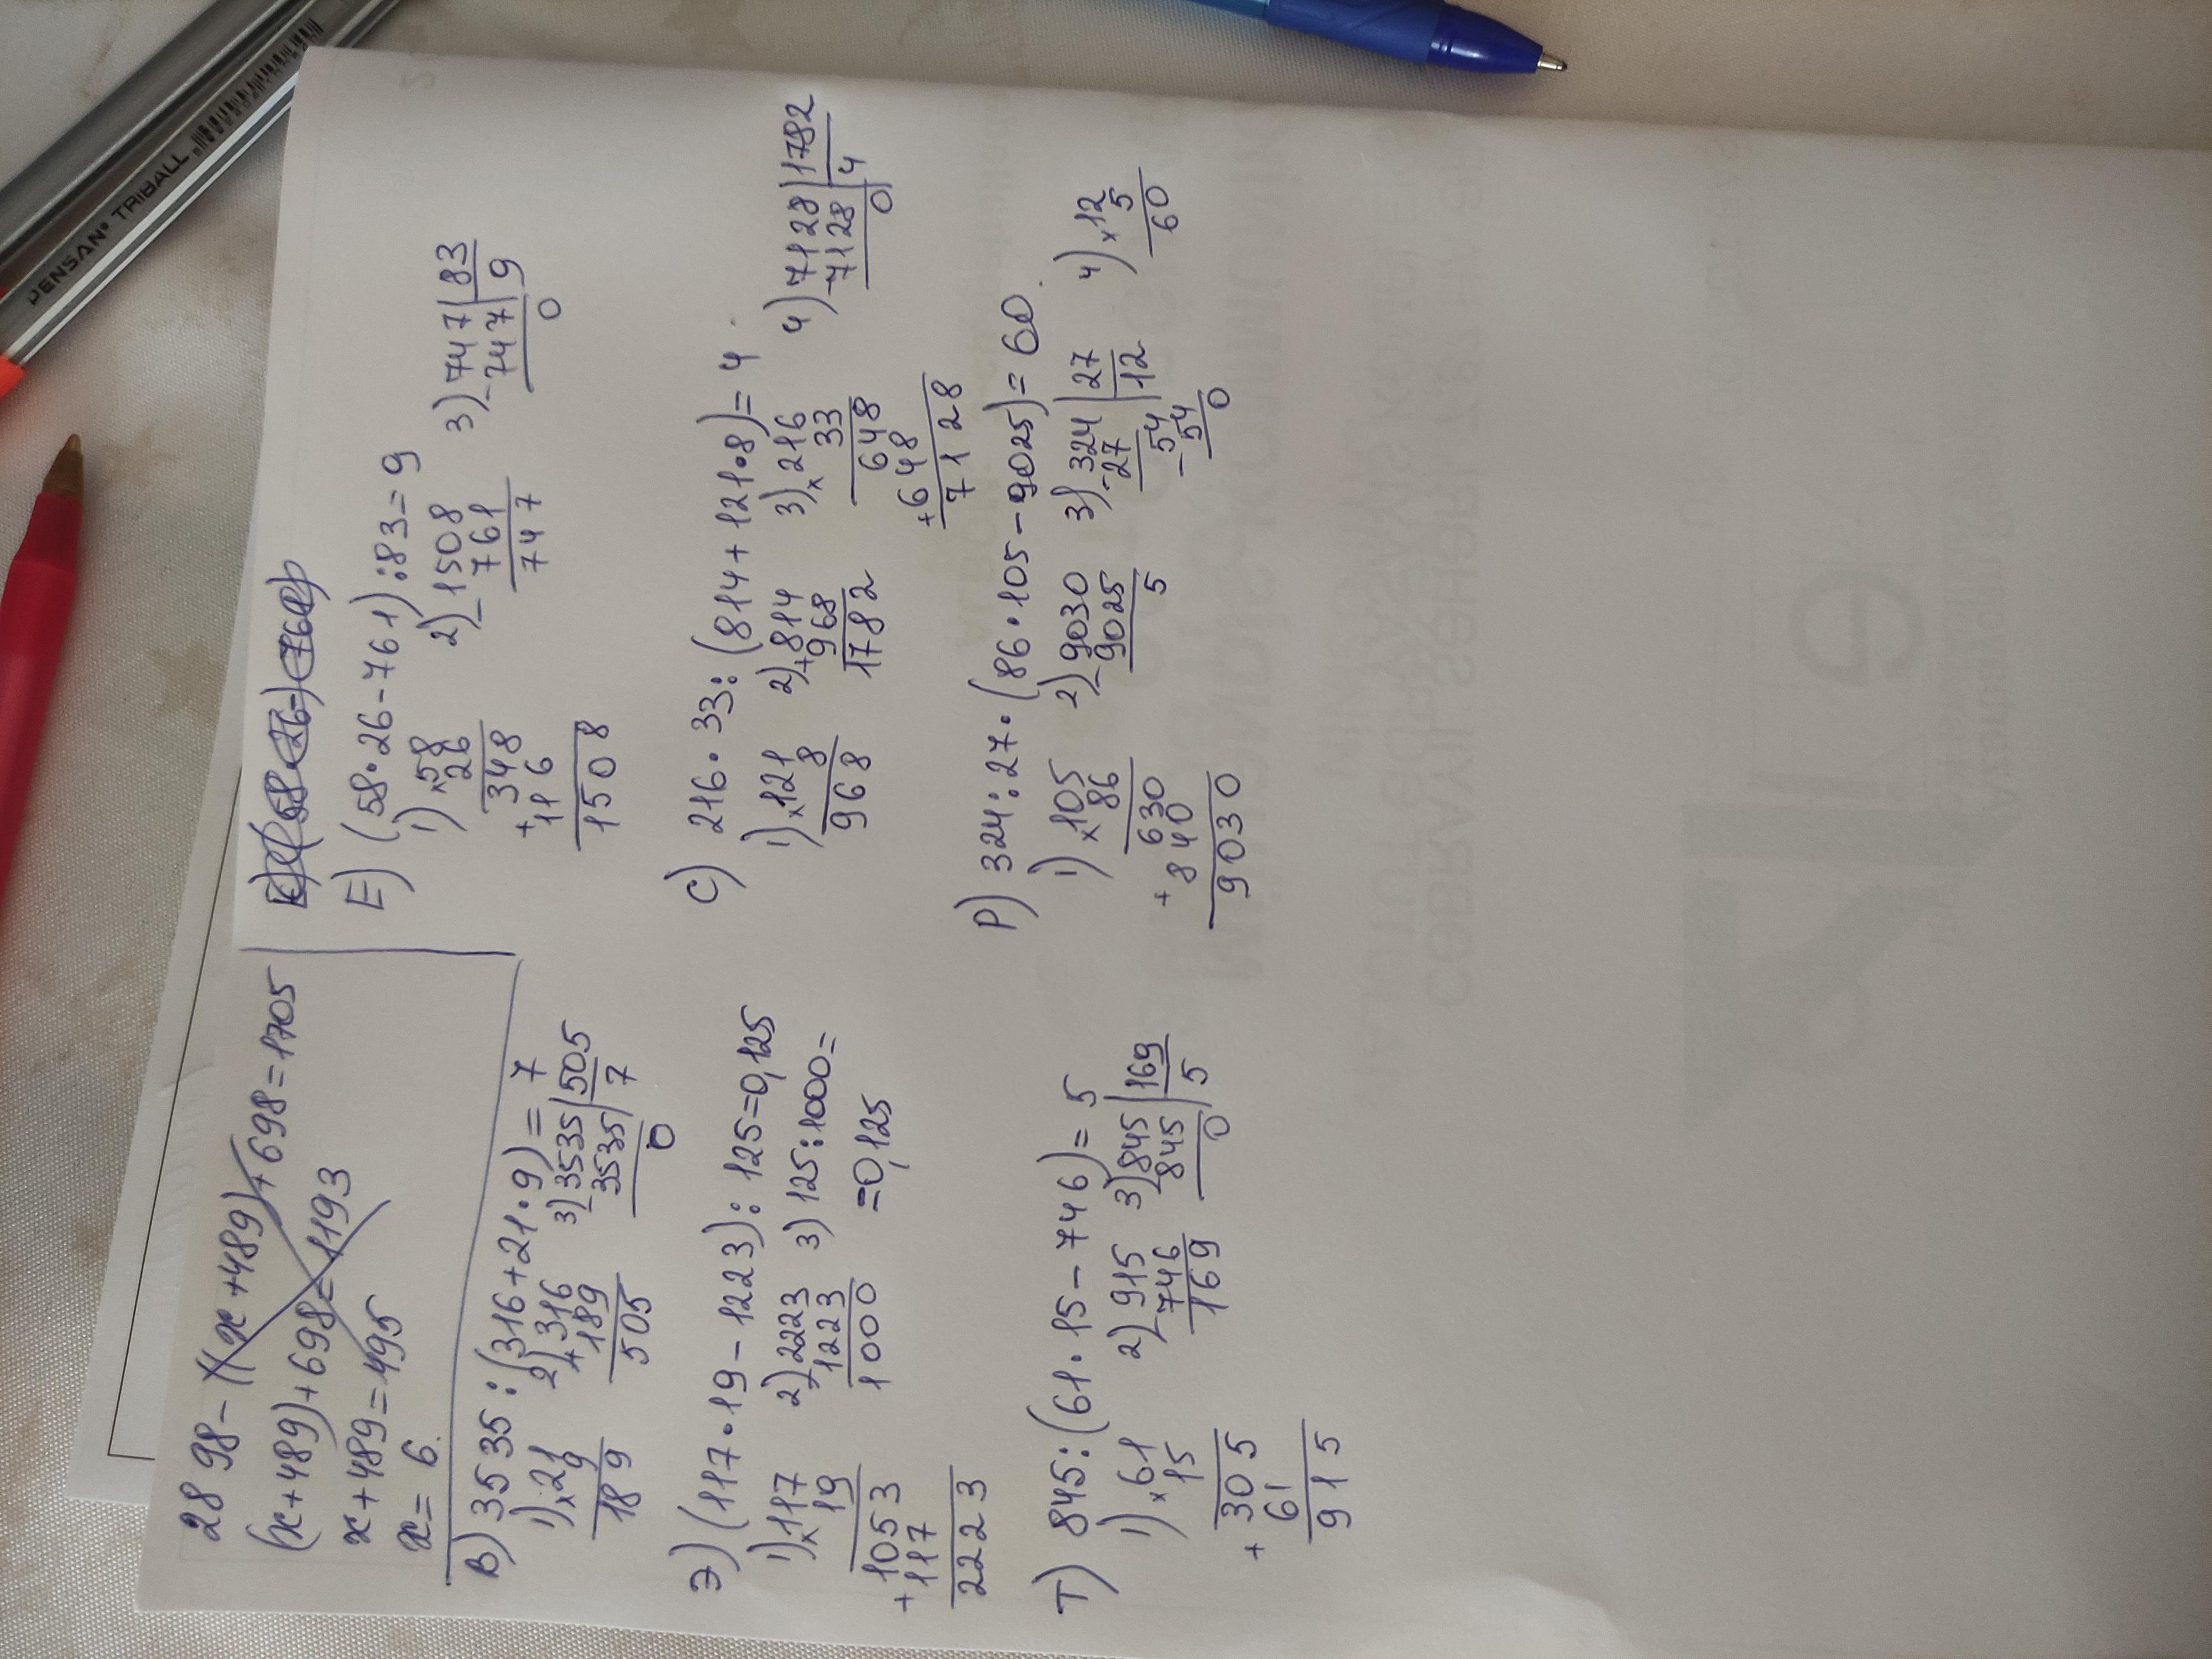 2898-((x+489)+698=1705
(x+489)+698=1193
x+489=495
x=6.
В) 3535:(316+21·9)=7
1) ×21
9
189
2) +316
189
505
3) -3535|505
3535|7
0
Э) (117·19-1223):125=0,125
1) ×117
19
+1053
117
2223
2) -2223
1223
1000
3) 125:1000=
=0,125
Т) 845:(61·15-746)=5
1) ×61
15
+305
61
915
2) -915
746
169
3) -845|169
845|5
0
Е) (58·26-761):83=9
1) ×58
26
+348
116
1508
2) -1508
761
747
3) -747|83
747|9
0
С) 216·33:(814+121·8)=4.
1) ×121
8
968
2) +814
968
1782
3) ×216
33
648
+648
7128
4) -7128|1782
7128|4
0
Р) 324:27·(86·105-9025)=60.
1) ×105
86
+630
840
9030
2) -9030
9025
5
3) 324|27
-27|12
-54
54
0
4) ×12
5
60
PENSAN® TRIBALL